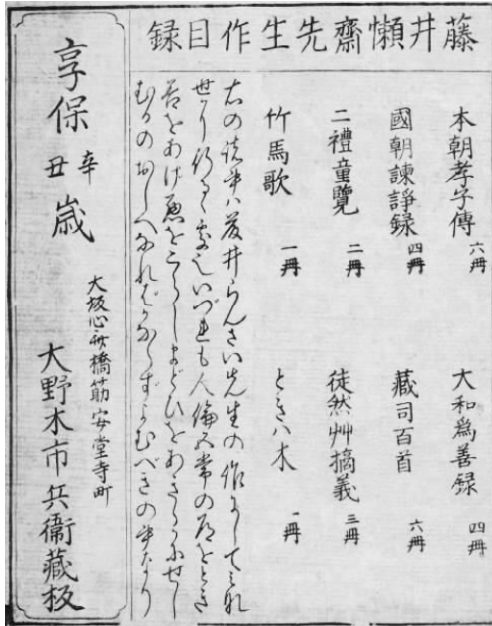 藤井懶齋先生作目録
本朝孝子傳 六冊
大和爲善録 四冊
國朝諫諍録 四冊
藏司百首 六冊
二禮童覽 二冊
徒然艸摘義 三冊
竹馬歌 一冊
ときハ木 一冊
右の諸書ハ藤井らんさい先生の作にして
世に行る いづれも人倫五常の道をとき
善をあげ悪をこらしまどひをあきらかにせし
むるのをしへなれバかならずよむべきの書なり
享保辛丑歳
大坂心斎橋筋安堂寺町
大野木市兵衞藏板